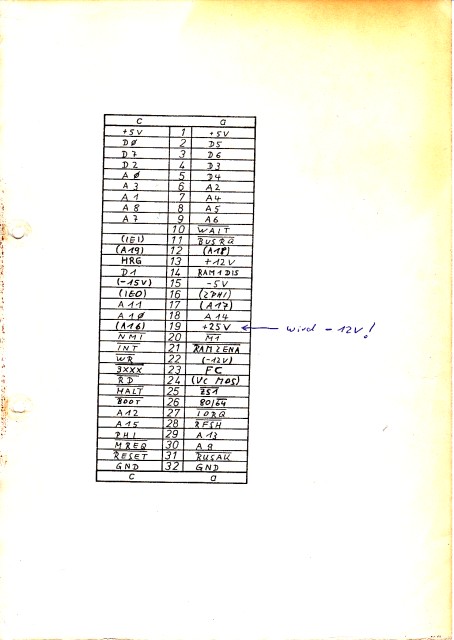 c a
+5V 1 +5V
DØ 2 D5
D7 3 D6
D2 4 D3
AØ 5 D4
A3 6 A2
A1 7 A4
A8 8 A5
A7 9 A6
10 W̅A̅I̅T̅
(IEI) 11 B̅U̅S̅R̅Q̅
(A19) 12 (A18)
HRG 13 +12V
D1 14 RAM1DIS
(-15V) 15 -5V
(IEO) 16 (2PHI)
A11 17 (A17)
A1Ø 18 A14
(A16) 19 +25V ← wird -12V!
N̅M̅I̅ 20 M̅1̅
I̅N̅T̅ 21 R̅A̅M̅2̅E̅N̅A̅
W̅R̅ 22 (-12V)
3̅X̅X̅X̅ 23 F̅C̅
R̅D̅ 24 (VC MOS)
H̅A̅L̅T̅ 25
B̅O̅O̅T̅ 26 80/6̅4̅
A12 27 I̅O̅R̅Q̅
A15 28 R̅F̅S̅H̅
PHI 29 A13
M̅R̅E̅Q̅ 30 A9
R̅E̅S̅E̅T̅ 31 B̅U̅S̅A̅K̅
GND 32 GND
c a